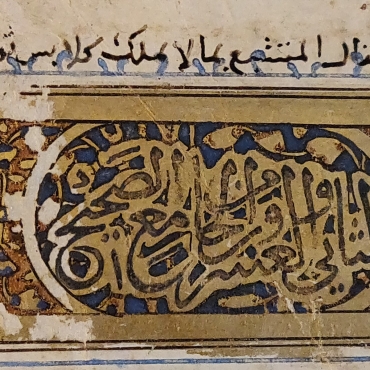 المتشبع بما لا يملك كلابس
الثاني والعشرون من الجامع الصحيح